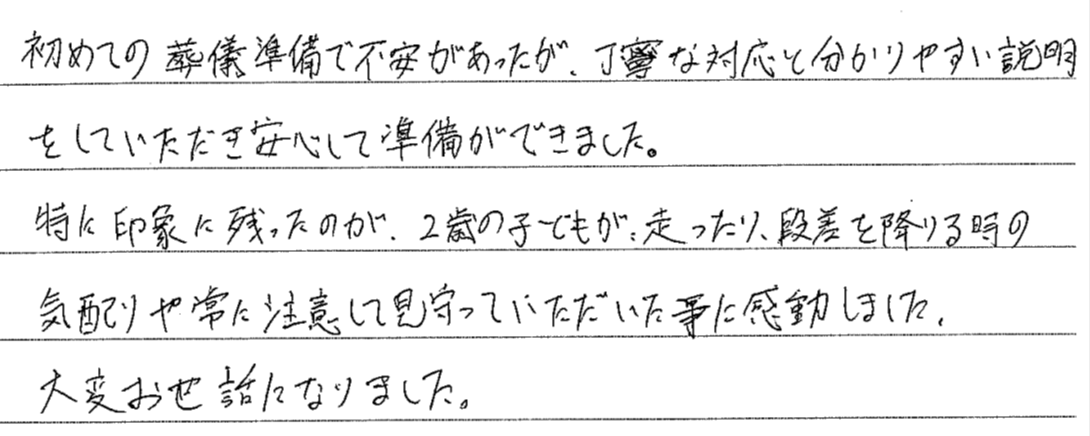 初めての葬儀準備で不安があったが、丁寧な対応と分かりやすい説明
をしていただき安心して準備ができました。
特に印象に残ったのが、2歳の子どもが、走ったり、段差を降りる時の
気配りや常に注意して見守っていただいた事に感動しました。
大変お世話になりました。